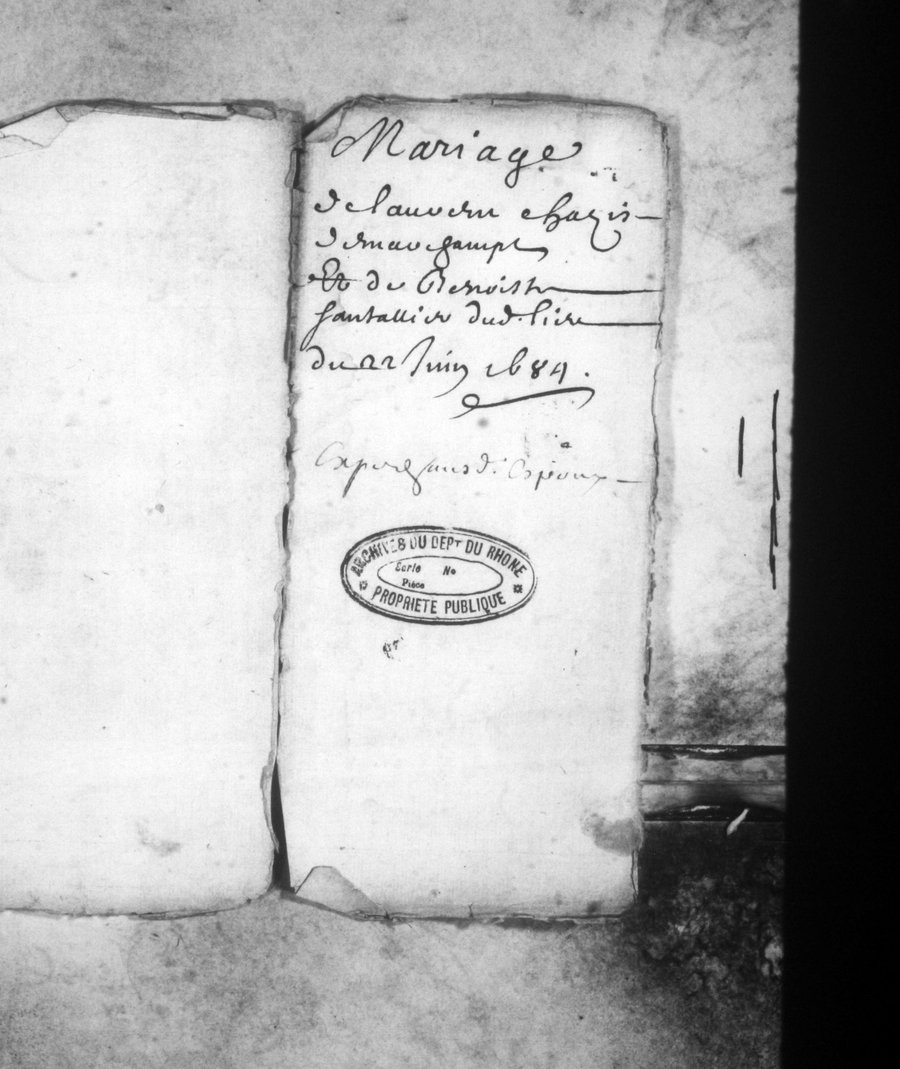 Mariage
de lauvern chazis
demarchampt
Et de Benoiste
fontallier dud. lieu
du 22 Juin 1684.
Epoux
ARCHIVES DU DEPT DU RHONE
Serie No
Pièce
PROPRIETE PUBLIQUE